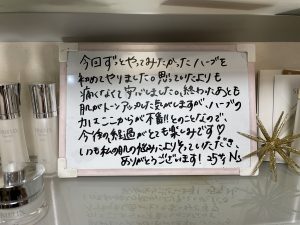 今回ずっとやってみたかったハーブを
初めてやりました。思っていたよりも
痛くなくて安心しました。終わったあとも
肌がトーンアップした気がしますが、ハーブの
力はここからが本番!!とのことなので、
今後の経過がとても楽しみです♡
いつも私の肌の悩みによりそっていただき、
ありがとうございます! 25才 N.S